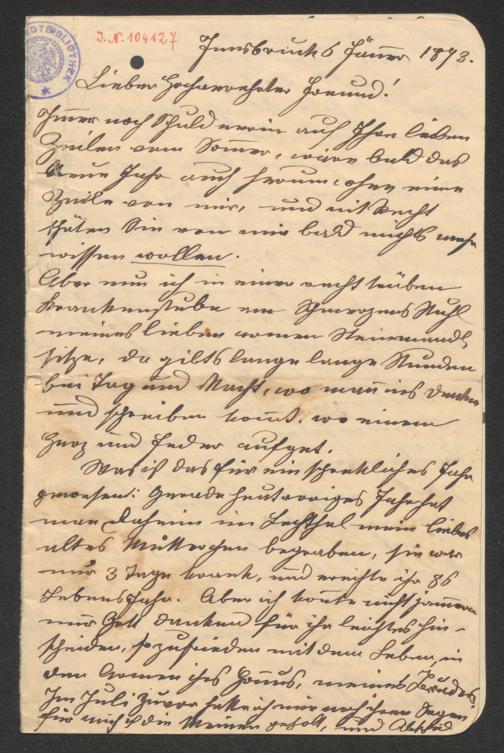 I.N. 104127
Innsbruck 6 Jänner 1873.
Lieber hochverehrter Freund!
Immer noch Schuldnerin auf Ihre lieben
Zeilen vom Sommer, wäre bald das
Neue Jahr auch herum ohne eine
Zeile von mir, und mit Recht
thäten Sie von mir bald nichts mehr
wissen wollen.
Aber nun ich in einer recht trüben
Krankenstube am Schmerzens Stuhl
meines lieben armen Steinwandl
sitze, da gibts lange lange Stunden
bei Tag und Nacht, wo man ins Denken
und schreiben kommt, wo einem
Herz und Feder aufget.
Was ist das für ein schreckliches Jahr
gewesen: Gerade heut voriges Jahr hat
man daheim im Lechthal mein liebes
altes Mütterchen begraben, sie war
nur 3 Tage krank, und ereichte ihr 86
Lebensjahr. Aber ich konnte nicht jammern
nur Gott danken für ihr leichtes Hin-
scheiden, so zufrieden mit dem Leben, in
den Armen ihres Sohnes, meines Bruders.
Im Juli zuvor hatte ich mir noch ihren Segen
für mich u die Meinen geholt, und Abschied